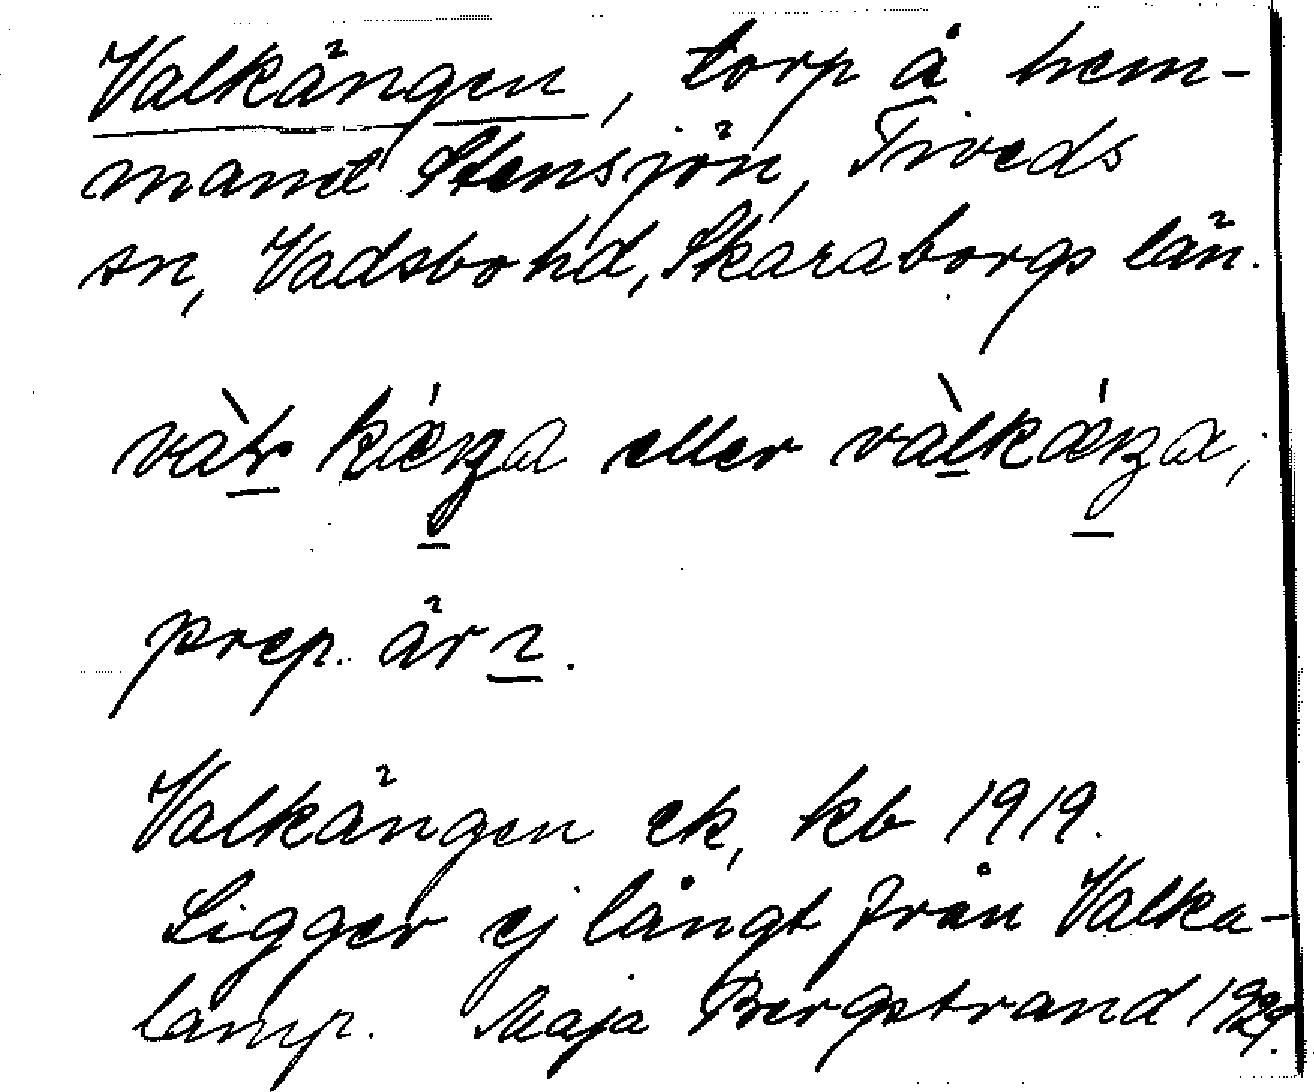 Valkängen, torp å hem-
manet Stensjön, Tiveds
sn, Vadsbo hd, Skaraborgs län.
eller
prep.
Valkängen ek, kb 1919.
Ligger ej långt från Valka-
lamp. Maja Bergstrand 1929.